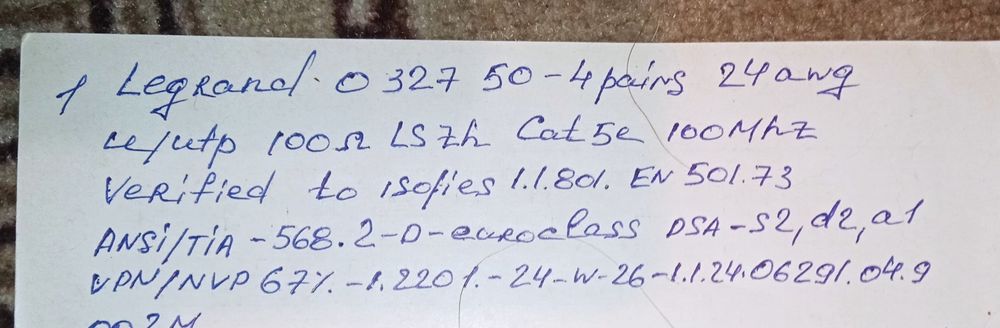 1 Legrand. 0 327 50 - 4 pairs 24 awg
ce/utp 100Ω LSZh Cat 5e 100Mhz
Verified to isofies 1.1.801. EN 501.73
ANSi/TiA - 568.2-D-euroclass DSA-S2, d2, a1
VPN/NVP 67%. -1.2201.-24-W-26-1.1.24.06291.04.9
002M